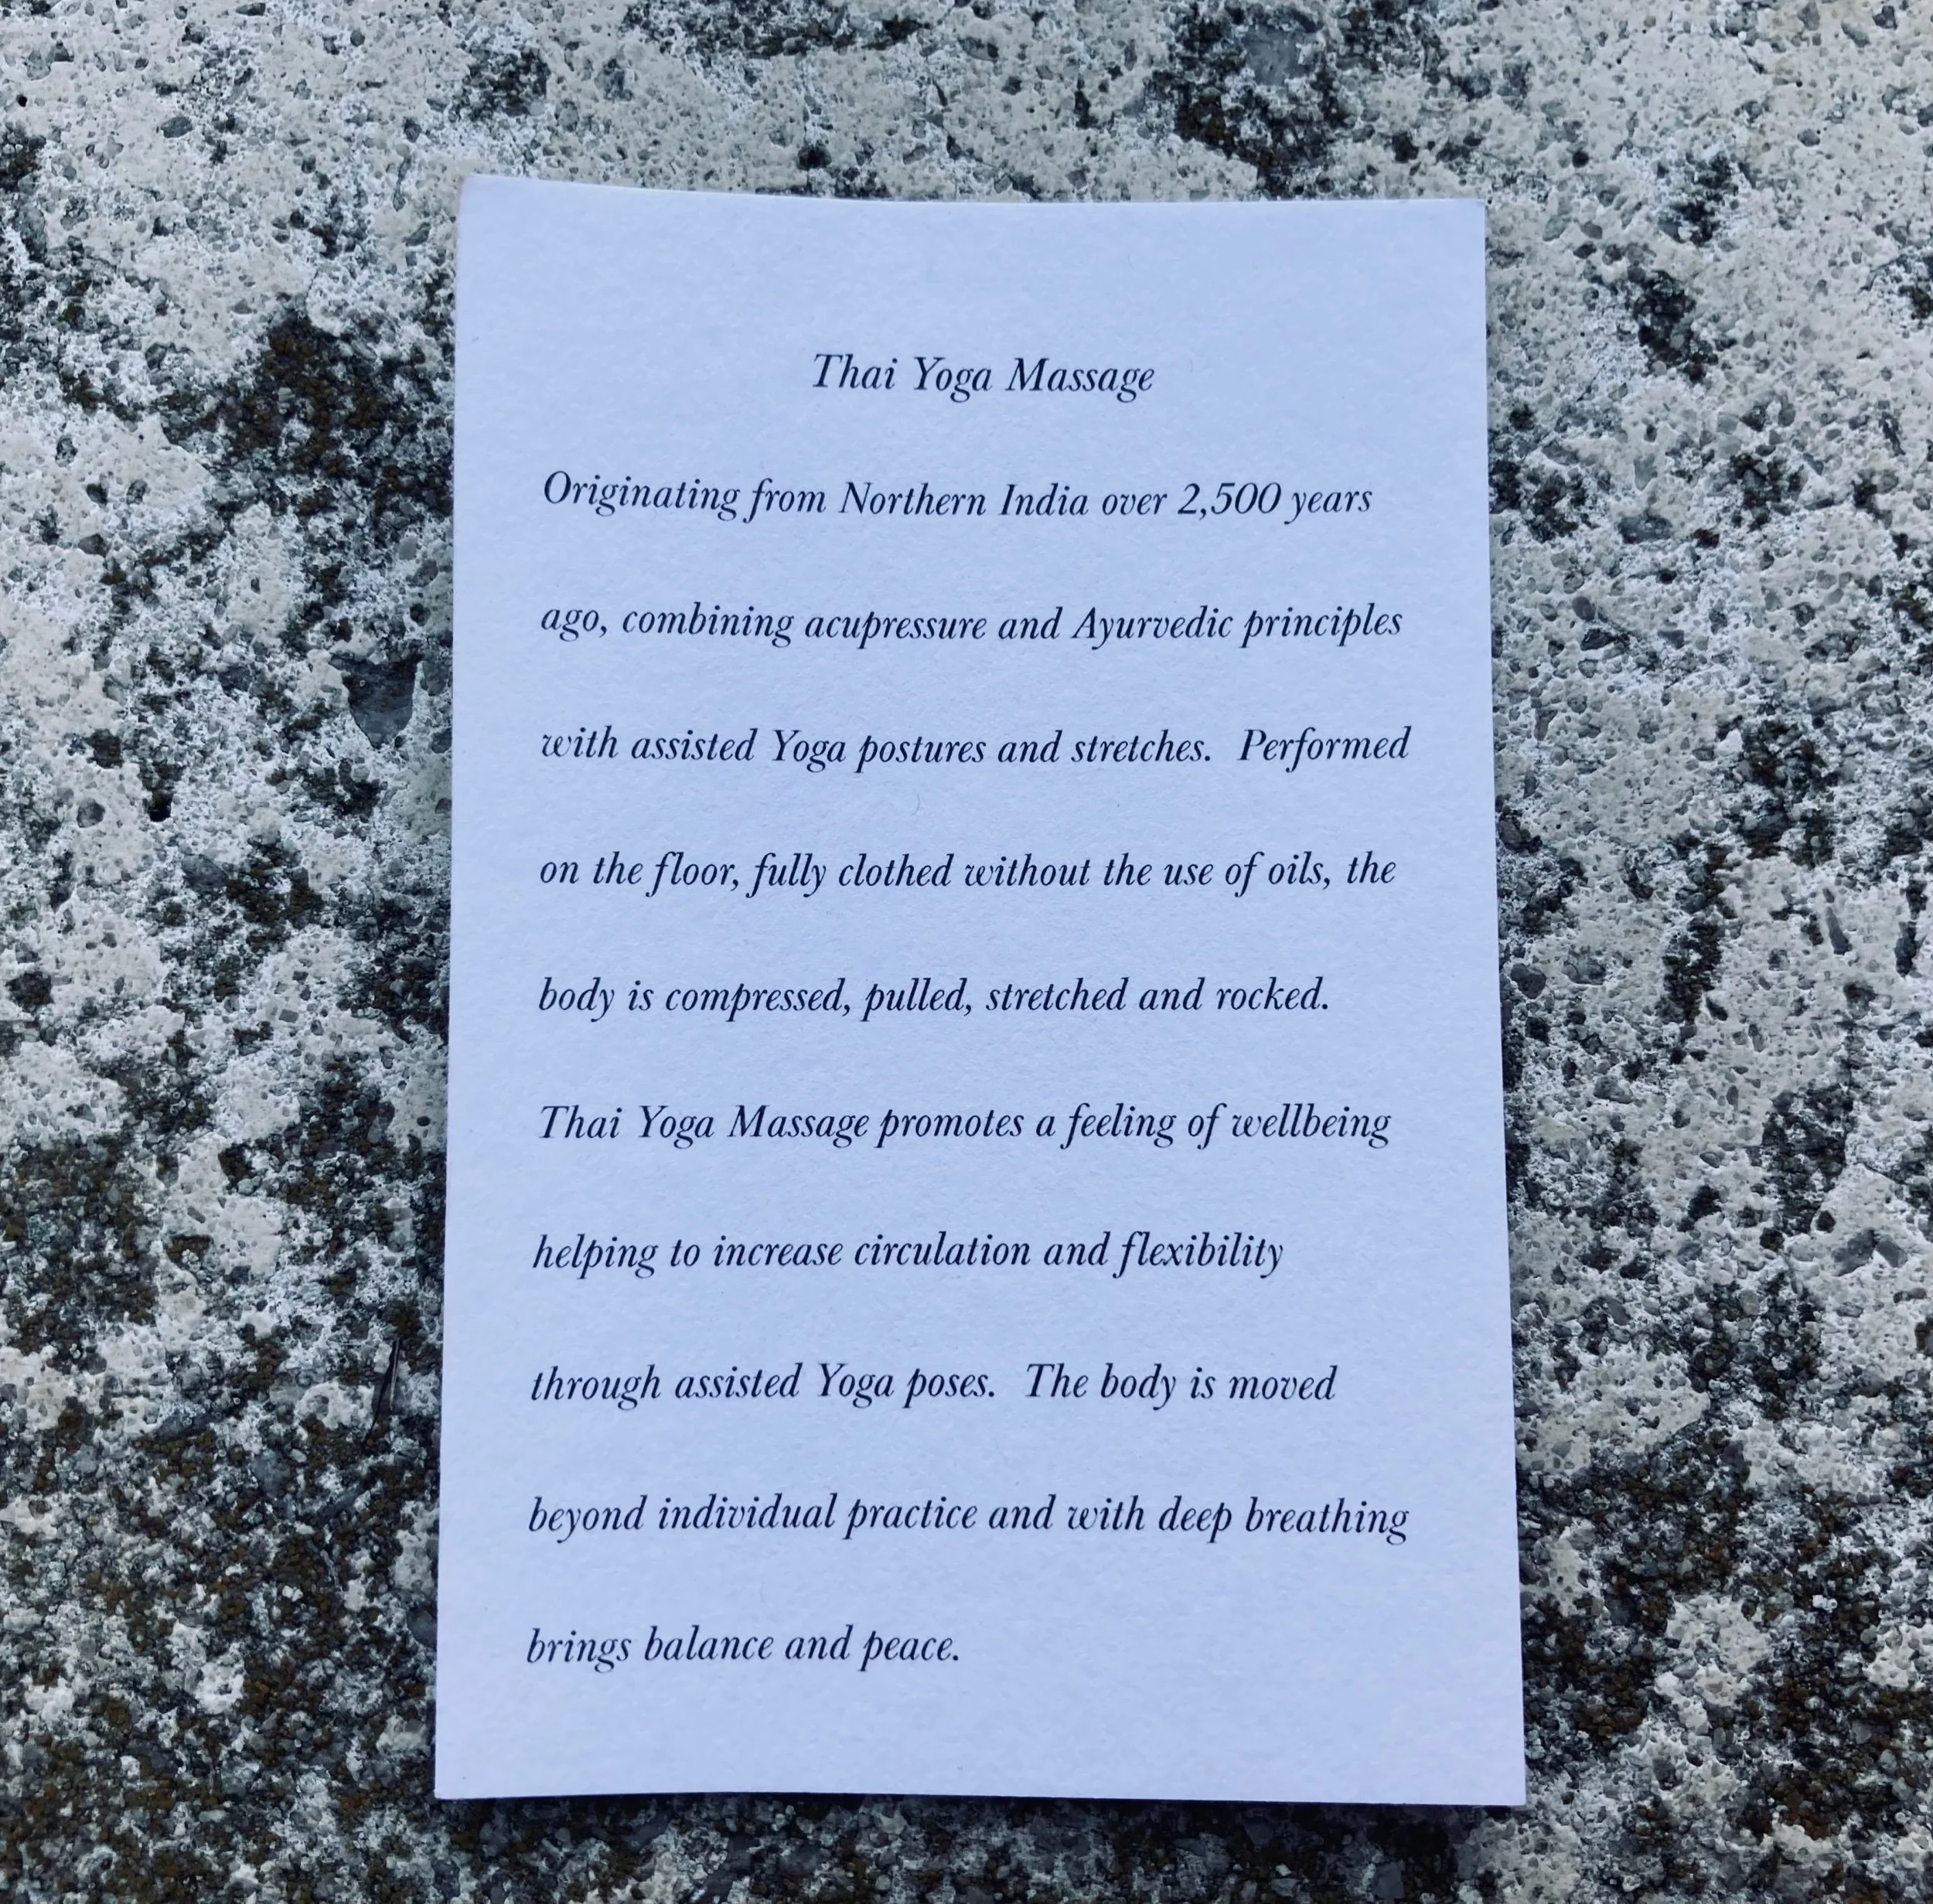 Thai Yoga Massage
Originating from Northern India over 2,500 years
ago, combining acupressure and Ayurvedic principles
with assisted Yoga postures and stretches.  Performed
on the floor, fully clothed without the use of oils, the
body is compressed, pulled, stretched and rocked.
Thai Yoga Massage promotes a feeling of wellbeing
helping to increase circulation and flexibility
through assisted Yoga poses.  The body is moved
beyond individual practice and with deep breathing
brings balance and peace.